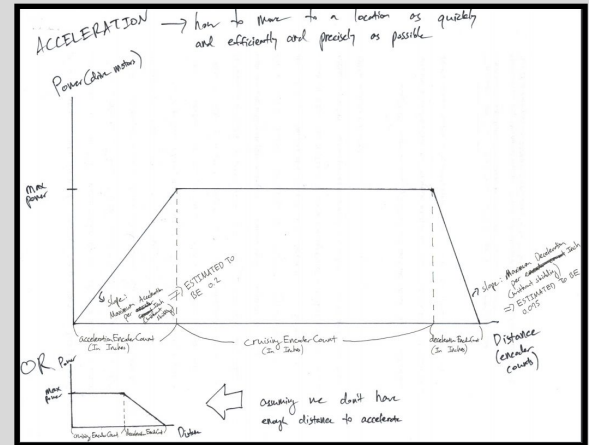 ACCELERATION → how to move to a location as quickly
and efficiently and precisely as possible
Power (drive motors)
max
power
slope:
Maximum Acceleration
per Inch
(without skidding)
=> ESTIMATED TO
BE 0.2
slope: Maximum Deceleration
per Inch
(without skidding)
=> ESTIMATED TO BE
0.075
acceleration Encoder Count
(In Inches)
cruising Encoder Count
(In Inches)
deceleration EncdCount
(In Inches)
Distance
(encoder
counts)
OR
Power
max
power
cruising Encoder Count
Distance
assuming we don't have
enough distance to accelerate